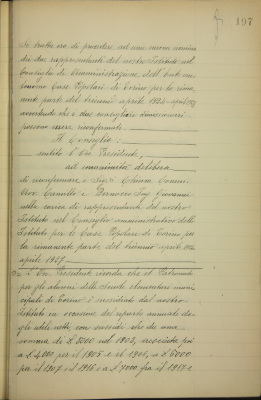 197
Si tratta ora di procedere ad una nuova nomina
dei due rappresentanti del nostro Istituto nel
Consiglio di Amministrazione dell'Ente au-
tonomo Case Popolari di Torino per la rima-
nente parte del triennio aprile 1924 - aprile 1927
avvertendo che i due consiglieri dimissionari
possono essere riconfermati.
Il Consiglio:
sentito l'On. Presidente,
ad unanimità delibera
di riconfermare i Sigg.
Avv. Camillo e Ing. Giovanni
nella carica di rappresentanti del nostro
Istituto nel Consiglio amministrativo dello
Istituto per le Case Popolari di Torino per
la rimanente parte del triennio aprile 1924
aprile 1927
L'On. Presidente ricorda che il Patronato
per gli alunni delle Scuole elementari muni-
cipali di Torino è sussidiato dal nostro
Istituto in occasione del riparto annuale de-
gli utili netti, con sussidi che da una
somma di £ 3000 nel 1903, crescinta poi
a £ 4000 per il 1905 e il 1906, a £ 5000
per il 1907 il 1916 e a £ 7000 fra il 1917 e